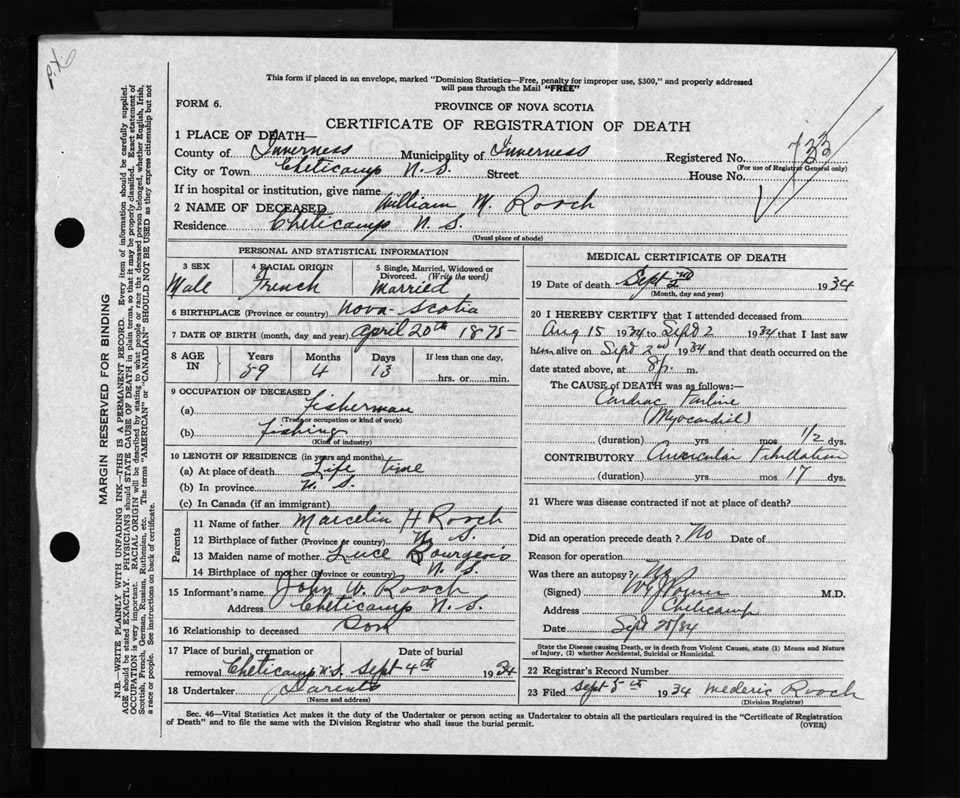 This form if placed in an envelope, marked "Dominion Statistics—Free, penalty for improper use, $300," and properly addressed
will pass through the Mail "FREE"
FORM 6.
PROVINCE OF NOVA SCOTIA
CERTIFICATE OF REGISTRATION OF DEATH
1 PLACE OF DEATH—
County of Inverness Municipality of Inverness Registered No. 733
(For use of Registrar General only)
City or Town Cheticamp N.S. Street House No.
If in hospital or institution, give name
2 NAME OF DECEASED William M. Rooch
Residence Cheticamp N. S.
(Usual place of abode)
PERSONAL AND STATISTICAL INFORMATION
3 SEX Male
4 RACIAL ORIGIN French
5 Single, Married, Widowed or Divorced. (Write the word) Married
6 BIRTHPLACE (Province or country) Nova Scotia
7 DATE OF BIRTH (month, day and year) April 20th 1875
8 AGE IN Years 59 Months 4 Days 13 If less than one day, hrs. or min.
9 OCCUPATION OF DECEASED
(a) fisherman
(Trade or occupation or kind of work)
(b) fishing
(Kind of industry)
10 LENGTH OF RESIDENCE (in years and months)
(a) At place of death Life time
(b) In province N. S.
(c) In Canada (if an immigrant)
Parents
11 Name of father Marcelin H Rooch
12 Birthplace of father (Province or country) N. S.
13 Maiden name of mother Luce Bourgeois
14 Birthplace of mother (Province or country) N. S.
15 Informant's name John W. Rooch
Address Cheticamp N. S.
16 Relationship to deceased Son
17 Place of burial, cremation or removal Cheticamp N.S. Date of burial Sept 4th 1934
18 Undertaker Parents
(Name and address)
MEDICAL CERTIFICATE OF DEATH
19 Date of death Sept 2nd 1934
(Month, day and year)
20 I HEREBY CERTIFY that I attended deceased from
Aug 15 1934 to Sept 2 1934 that I last saw
him alive on Sept 2nd 1934 and that death occurred on the
date stated above, at 8 p. m.
The CAUSE OF DEATH was as follows:—
Cardiac Failure
(Myocardial)
(duration) yrs mos 1/2 dys.
CONTRIBUTORY Auricular Fibrillation
(duration) yrs mos 17 dys.
21 Where was disease contracted if not at place of death?
Did an operation precede death? No Date of
Reason for operation
Was there an autopsy? No
(Signed) M.D.
Address Cheticamp
Date Sept 20/34
State the Disease causing Death, or in death from Violent Causes, state (1) Means and Nature
of Injury, (2) whether Accidental, Suicidal or Homicidal.
22 Registrar's Record Number
23 Filed Sept 5th 1934 Mederic Rooch
(Division Registrar)
Sec. 46—Vital Statistics Act makes it the duty of the Undertaker or person acting as Undertaker to obtain all the particulars required in the "Certificate of Registration
of Death" and to file the same with the Division Registrar who shall issue the burial permit.
(OVER)
MARGIN RESERVED FOR BINDING
N.B.—WRITE PLAINLY WITH UNFADING INK—THIS IS A PERMANENT RECORD. Every item of information should be carefully supplied.
AGE should be stated EXACTLY. PHYSICIANS should STATE CAUSE OF DEATH in plain terms, so that it may be properly classified. Exact statement of
OCCUPATION is very important. RACIAL ORIGIN will be described by stating to what people or race the deceased person belonged, whether English, Irish,
Scottish, French, German, Russian, Ruthenian, etc. The terms "AMERICAN" or "CANADIAN" SHOULD NOT BE USED as they express citizenship but not
a race or people. See instructions on back of certificate.